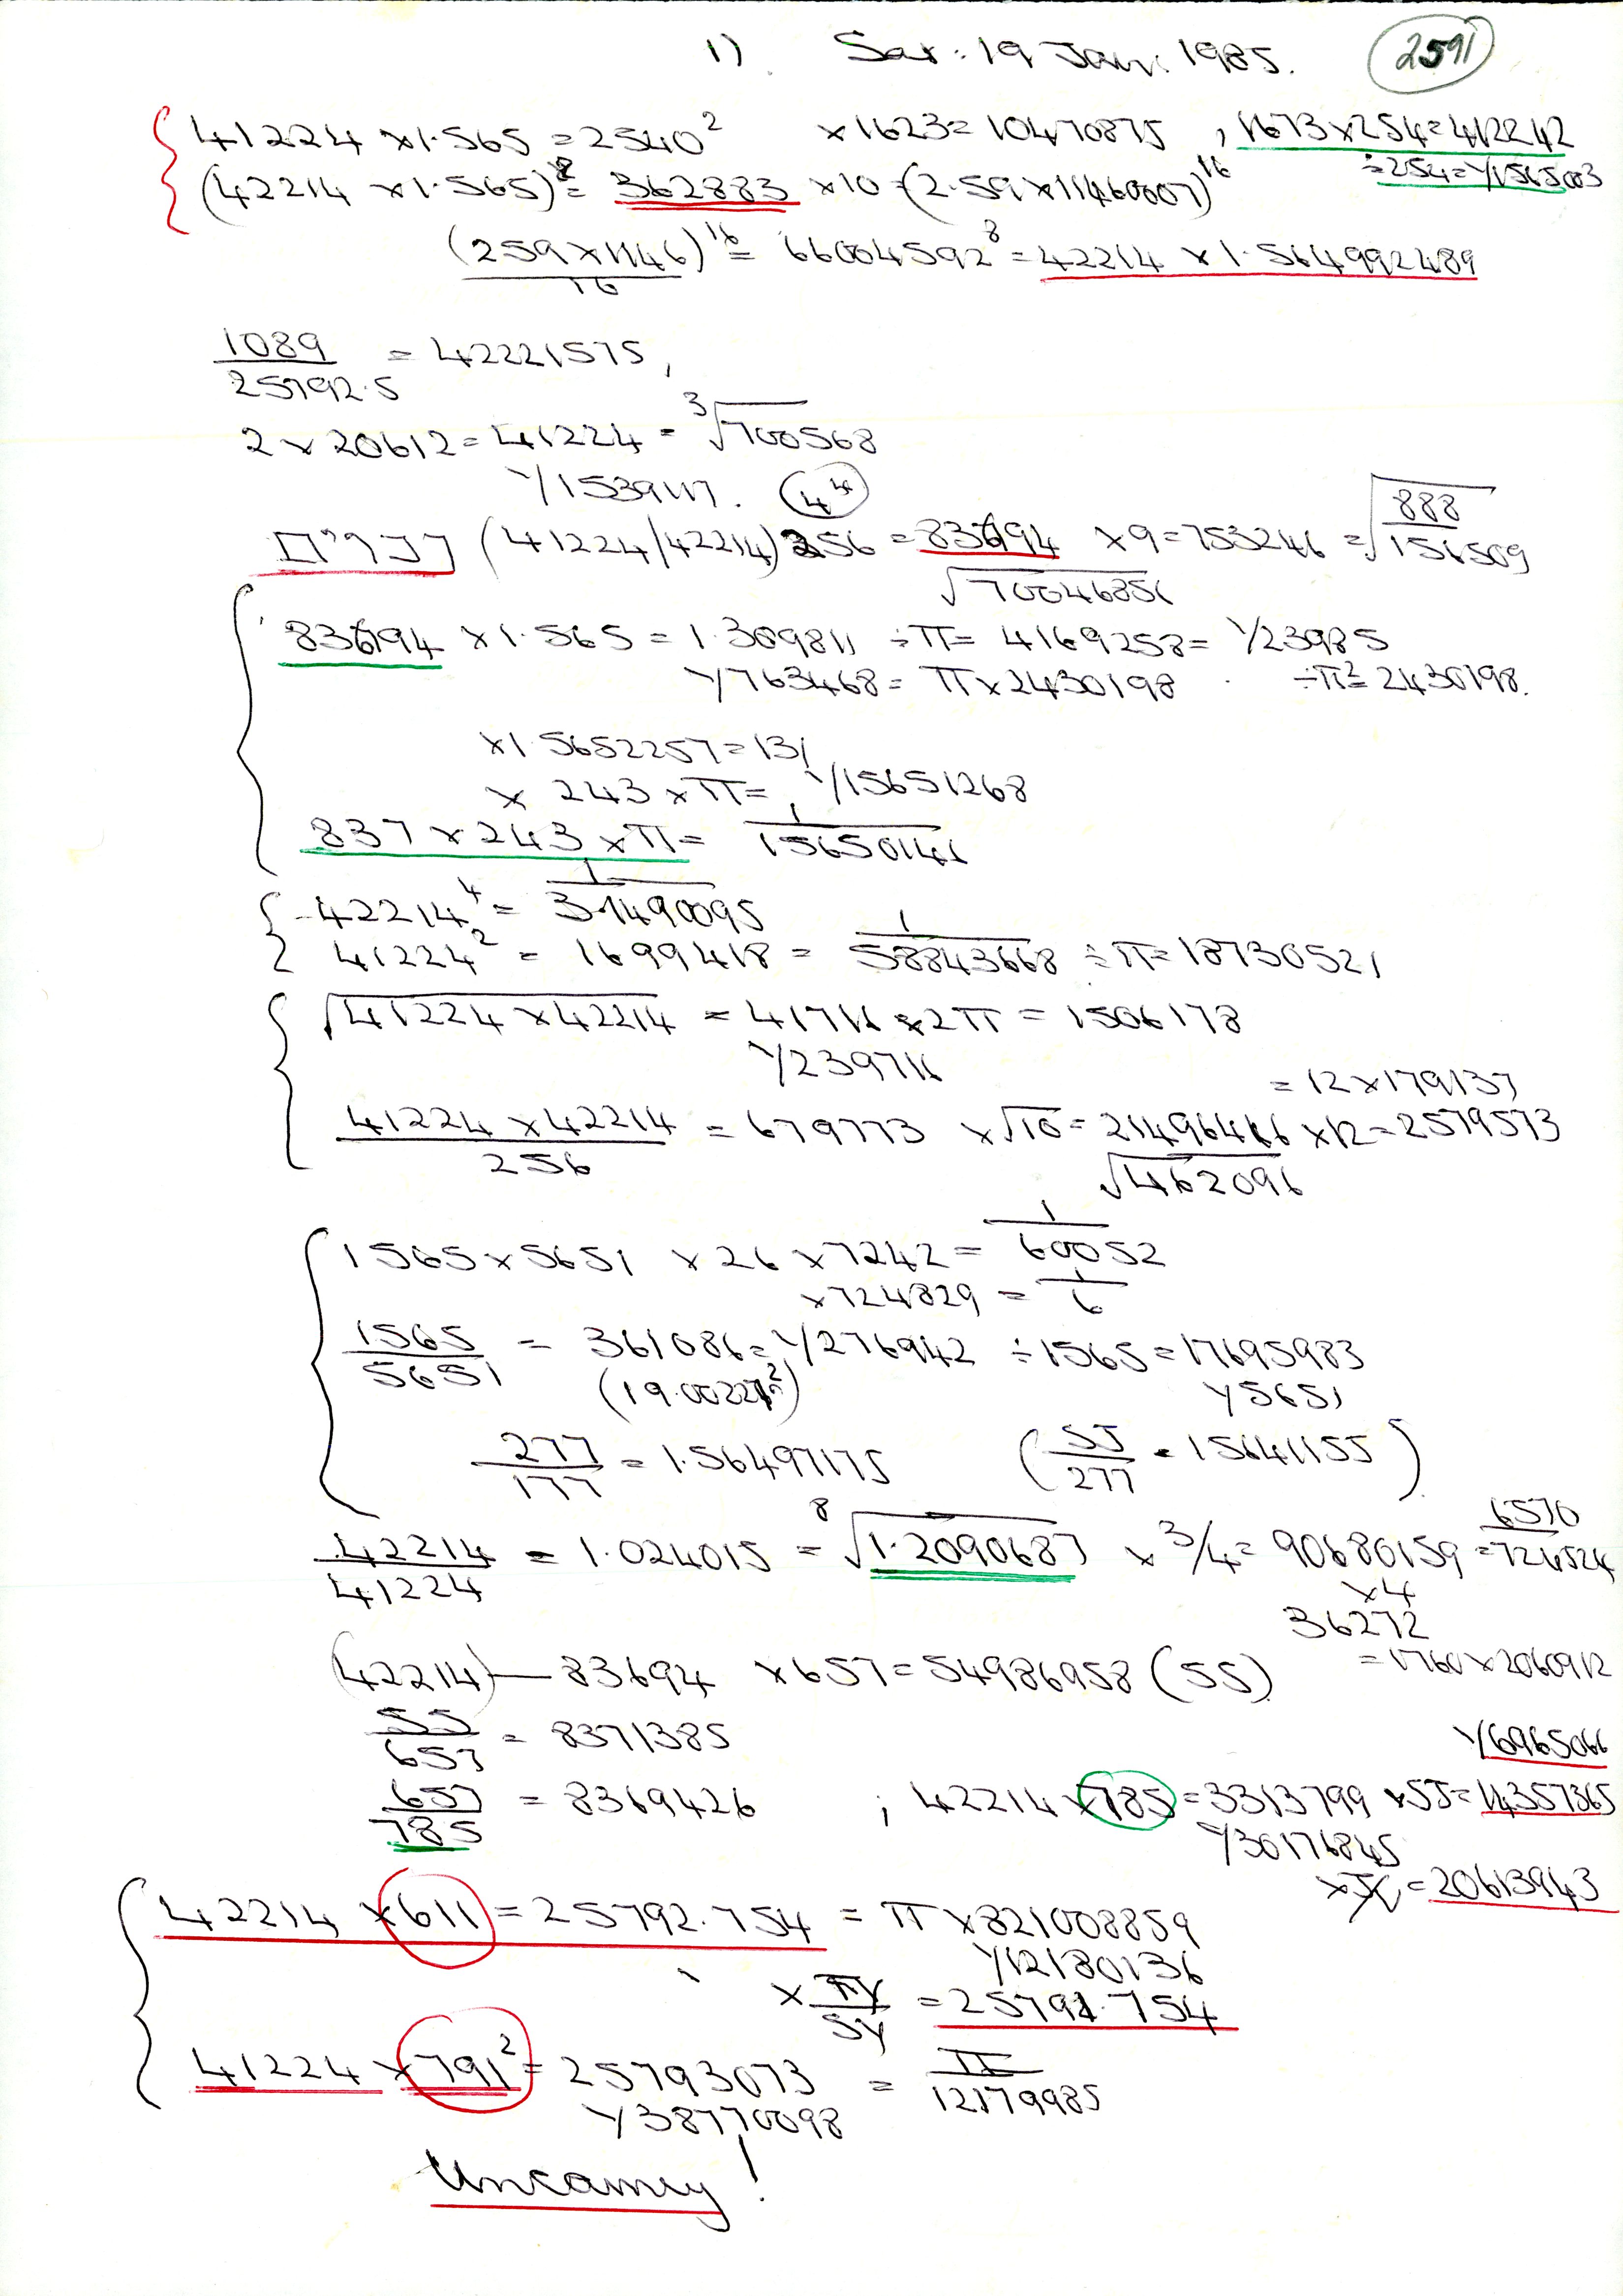 1) Sat: 19 Jan: 1985. 2591
41224 × 1·565 = 2540² × 1623 = 10470875 , 1673 × 254 = 412242
÷ 254 = 1/1565003
(42214 × 1.565)⁸ = 362883 × 10 = (2·59 × 11460007)¹⁶
(259 × 1146)¹⁶ = 66004592⁸ = 42214 × 1·564992489
10
1089 = 42221575,
25792·5
2 × 20612 = 41224 = ³√700568
1/1539117. (4⁴)
(41224/42214) 256 = 83694 × 9 = 753246 = √888
156509
√70046856
83694 × 1·565 = 1·309811 ÷ π = 4169258 = 1/23985
1/763468 = π × 2430198 ÷ π² = 2430198.
× 1·5652257 = 131
× 243 × π = 1/15651268
837 × 243 × π = 1
15650141
42214⁴ = 1
3·1490095
41224² = 1699418 = 1
58843668 ÷ π = 18730521
√41224 × 42214 = 41716 × 2π = 1506178
1/239716
= 12 × 179137
41224 × 42214 = 679773 × √10 = 21496416 × 12 = 2579573
256
√462096
1565 × 5651 × 26 × 7242 = 1
60052
× 724829 = 1
6
1565 = 361086 = 1/276942 ÷ 1565 = 17695983
5651 (19.00227²) 1/5651
277 = 1·56497175 (55 = 15641155)
177 277
42214 = 1·024015 = ⁸√1·2090687 × 3/4 = 90680159 = 6570
41224 724524
× 4
36272
= 1760 × 2060912
(42214) — 83694 × 657 = 54986958 (55)
55 = 8371385
657
1/6965066
657 = 8369426 ; 42214 × 785 = 3313799 × 55 = 14357365
785 1/30176845
= 20613943
42214 × 611 = 25792.754 = π × 821008859
1/12180136
= 25792·754
41224 × 791² = 25793073 = π
1/38770098 12179985
Uncanny!